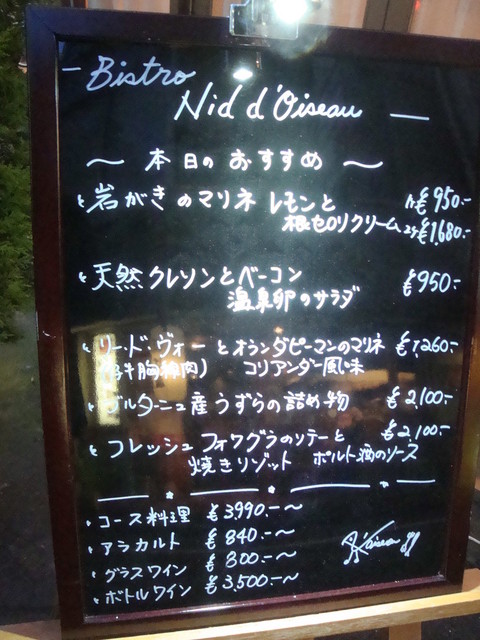 Bistro
Nid d'Oiseau
〜 本日の おすすめ 〜
岩がきのマリネ レモンと 1ヶ ¥950.-
根セロリクリーム 2ヶ ¥1,680.-
天然クレソンとベーコン ¥950.-
温泉卵のサラダ
リ・ド・ヴォーとオランダピーマンのマリネ ¥1,260.-
(仔牛胸腺肉) コリアンダー風味
ブルターニュ産うずらの詰め物 ¥2,100.-
フレッシュフォワグラのソテーと ¥2,100.-
焼きリゾット ポルト酒のソース
コース料理 ¥3,990.-〜
アラカルト ¥840.-〜
グラスワイン ¥800.-〜
ボトルワイン ¥3,500.-〜